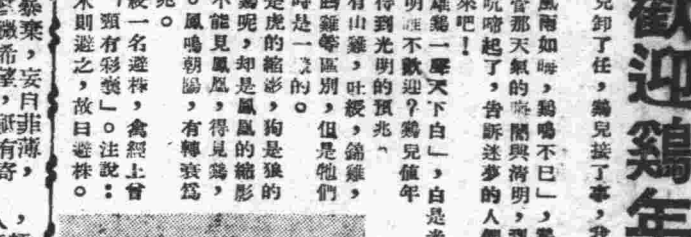 歡迎鷄年
兒卸了任，鷄兒接了事，我
風雨如晦，鷄鳴不已」，鷄
管那天氣的 與清明，
吭啼起了，告訴迷夢的人
來吧！
雄鷄一聲天下白」，白是光
明，誰不歡迎？鷄兒值年
得到光明的預兆。
有山雞，吐綬，錦雞，
雞等區別，但是牠們
時是一 的。
是虎的縮影，狗是狼的
鷄呢，却是鳳凰的縮影
不能見鳳凰，得見鷄，
。鳳鳴朝陽，有轉衰爲
兆。
綬一名避株，禽經上曾
「頸有彩囊」。注說：
木則避之，故曰避株。
暴棄，妄自菲薄，
微希望， 有奇